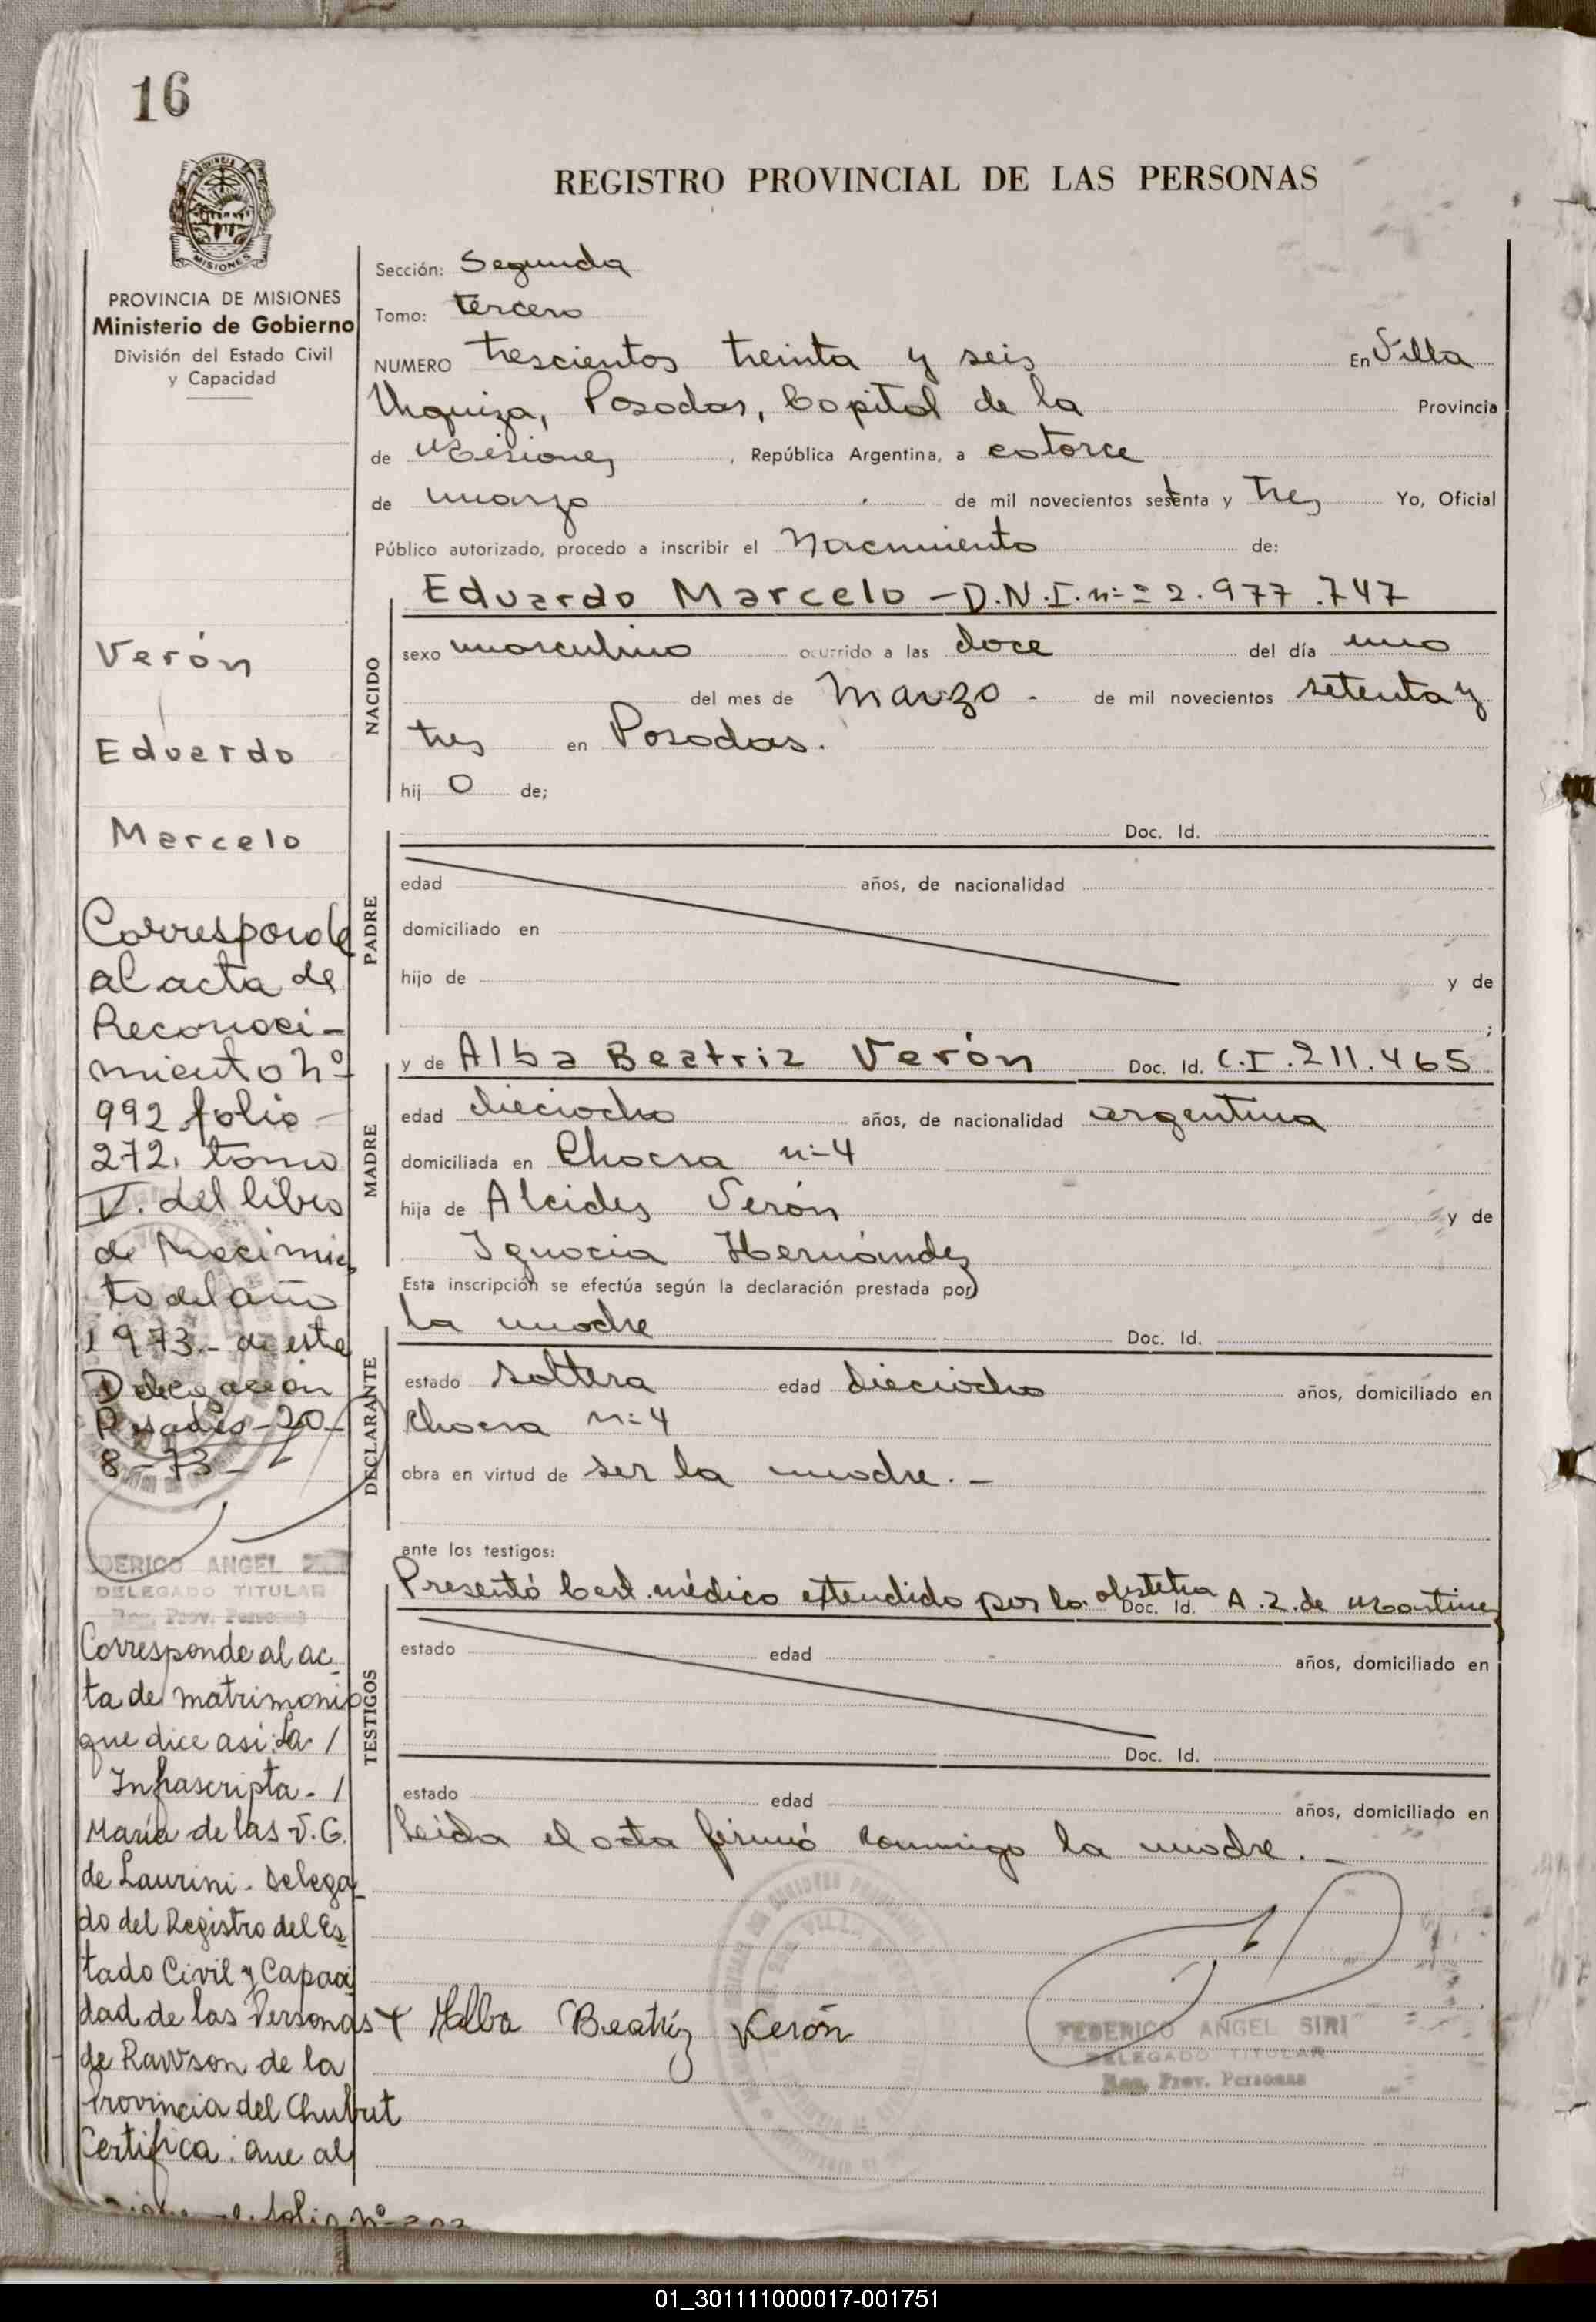 16
PROVINCIA DE MISIONES
MISIONES
PROVINCIA DE MISIONES
Ministerio de Gobierno
División del Estado Civil
y Capacidad
Verón
Eduardo
Marcelo
Corresponde
al acta de
Reconoci-
miento nº
992 folio
272. tomo
V. del libro
de Nacimien
to del año
1973.- de esta
Delegación
Posadas-20-
8-73-
FEDERICO ANGEL SIRI
DELEGADO TITULAR
Reg. Prov. Personas
Corresponde al ac-
ta de matrimonio
que dice así: La /
Infrascripta - /
María de las V. G.
de Laurini - Delega
do del Registro del Es-
tado Civil y Capaci
dad de las Personas
de Rawson de la
Provincia del Chubut
Certifica: que al
folio nº
REGISTRO PROVINCIAL DE LAS PERSONAS
Sección: Segunda
Tomo: tercero
NUMERO trescientos treinta y seis En Villa
Urquiza, Posadas, Capital de la Provincia
de Misiones, República Argentina, a catorce
de marzo de mil novecientos setenta y tres Yo, Oficial
Público autorizado, procedo a inscribir el Nacimiento de:
NACIDO
Eduardo Marcelo - D.N.I. n= 2.977.747
sexo masculino ocurrido a las doce del día uno
del mes de Marzo - de mil novecientos setenta y
tres en Posadas.
hij o de;
PADRE
Doc. Id.
edad años, de nacionalidad
domiciliado en
hijo de y de
;
MADRE
y de Alba Beatriz Verón Doc. Id. C.I. 211.465
edad dieciocho años, de nacionalidad argentina
domiciliada en Chacra n=4
hija de Alcides Verón y de
Ignacia Hernández
Esta inscripción se efectúa según la declaración prestada por
DECLARANTE
la madre Doc. Id.
estado soltera edad dieciocho años, domiciliado en
Chacra n=4
obra en virtud de ser la madre.-
ante los testigos:
TESTIGOS
Presentó Cert. médico extendido por la obstetra Doc. Id. A.Z. de Martínez
estado edad años, domiciliado en
Doc. Id.
estado edad años, domiciliado en
Leída el acta firmó conmigo la madre.-
Alba Beatriz Verón
FEDERICO ANGEL SIRI
DELEGADO TITULAR
Reg. Prov. Personas
01_301111000017-001751